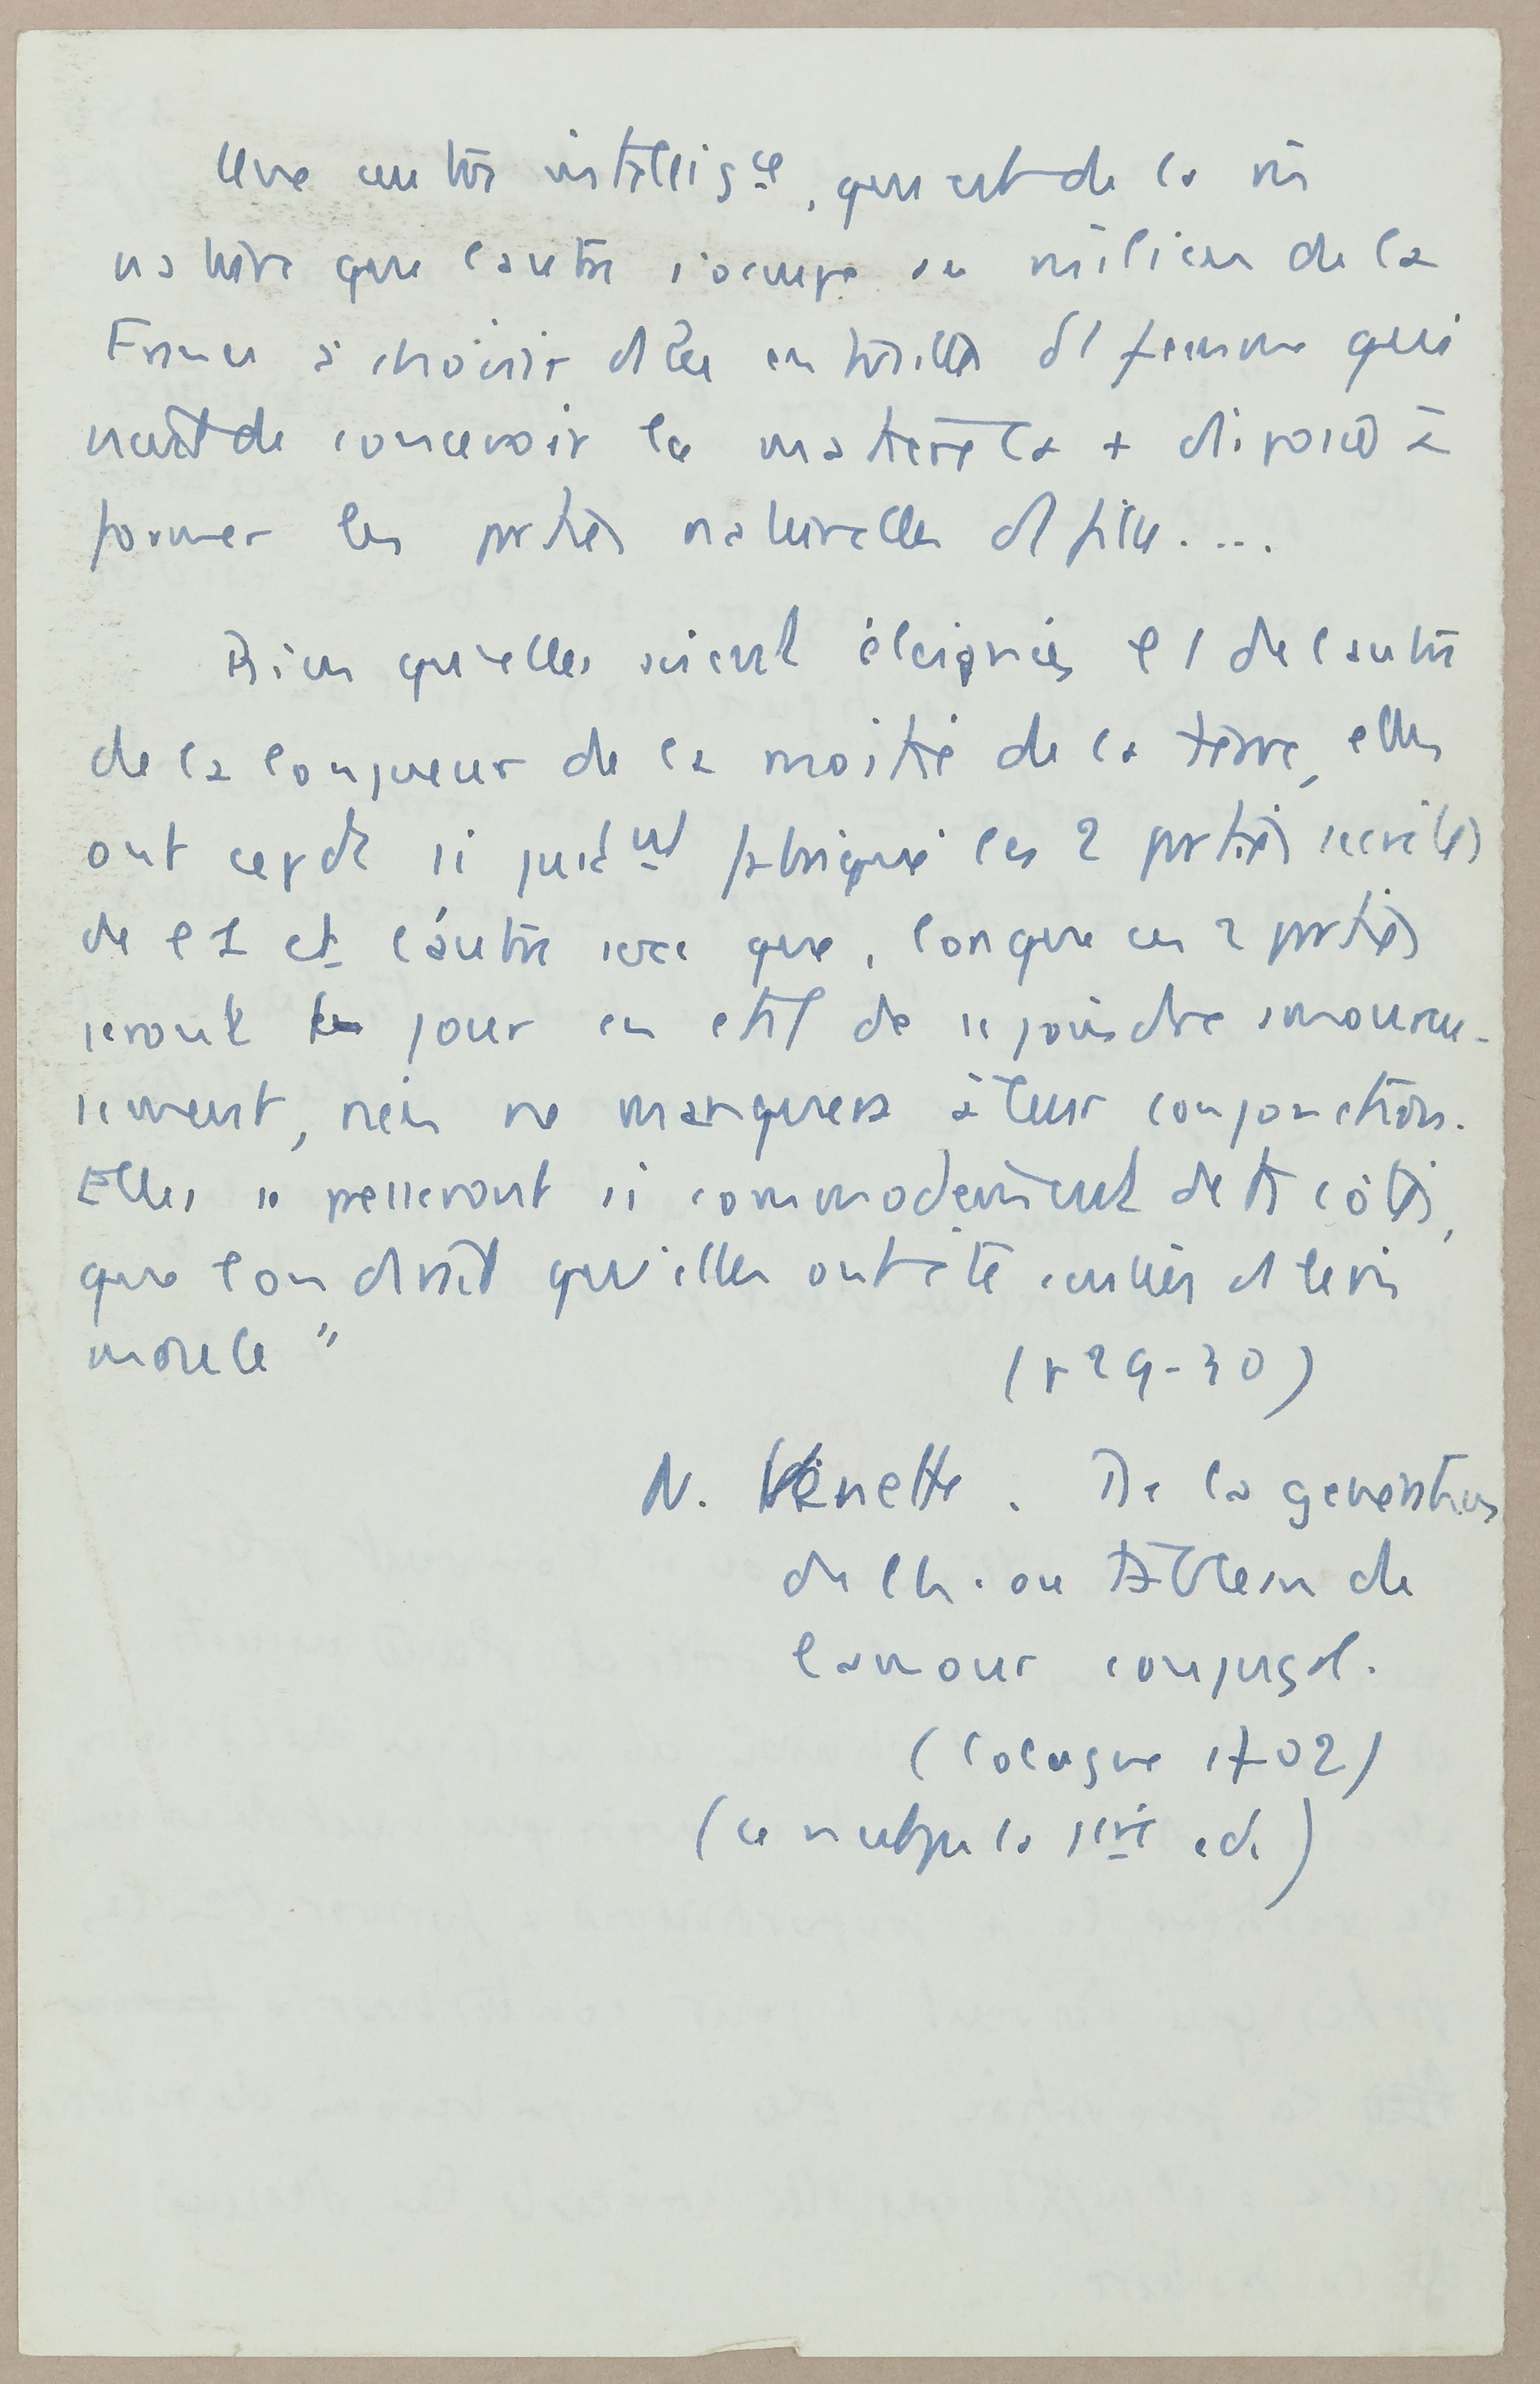 Une autre intellig^ce, qui est de la m̂
nature que l'autre s'occupe au milieu de la
France à choisir ds les entrailles d'1 femme qui
vient de concevoir la matière la + disposée à
former les parties naturelles d'1 fille....
Bien qu'elles soient éloignées l'1 de l'autre
de la longueur de la moitié de la terre, elles
ont cepdt si just^mt fabriqué les 2 parties secrètes
de l'1 et l'autre sexe que, lorsque ces 2 parties
seront un jour en état de se joindre amoureu-
sement, rien ne manquera à leur conjonction.
Elles se presseront si commodément de ts côtés,
que l'on dirait qu'elles ont été jetées ds le m̂
moule"
(p 29-30)
N. Venette. De la génération
de l'h. ou Tableau de
l'amour conjugal.
(Cologne 1702)
(ce n'est pas la 1ère ed.)